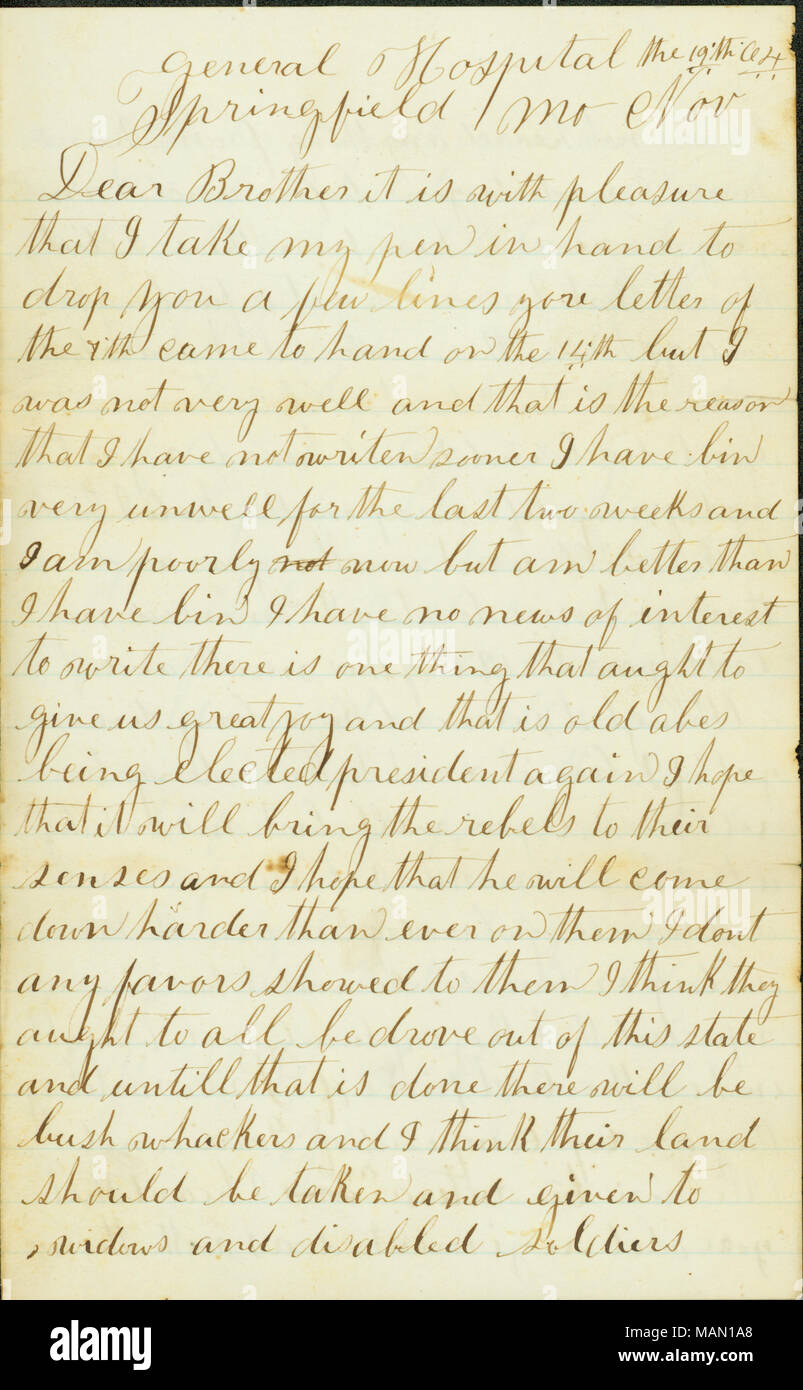 General Hospital the 19th 64
Springfield Mo Nov
Dear Brother it is with pleasure
that I take my pen in hand to
drop you a few lines yore letter of
the 7th came to hand on the 14th but I
was not very well and that is the reason
that I have not writen sooner I have bin
very unwell for the last two weeks and
I am poorly not now but am better than
I have bin I have no news of interest
to write there is one thing that aught to
give us great joy and that is old abes
being elected president again I hope
that it will bring the rebels to their
senses and I hope that he will come
down harder than ever on them I dont
any favors showed to them I think they
aught to all be drove out of this state
and untill that is done there will be
bush whackers and I think their land
should be taken and given to
widows and disabled soldiers
alamy
Image ID: MAN1A8
www.alamy.com